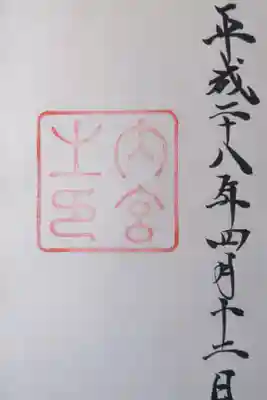 平成二十八年四月十二日
内宮
之印